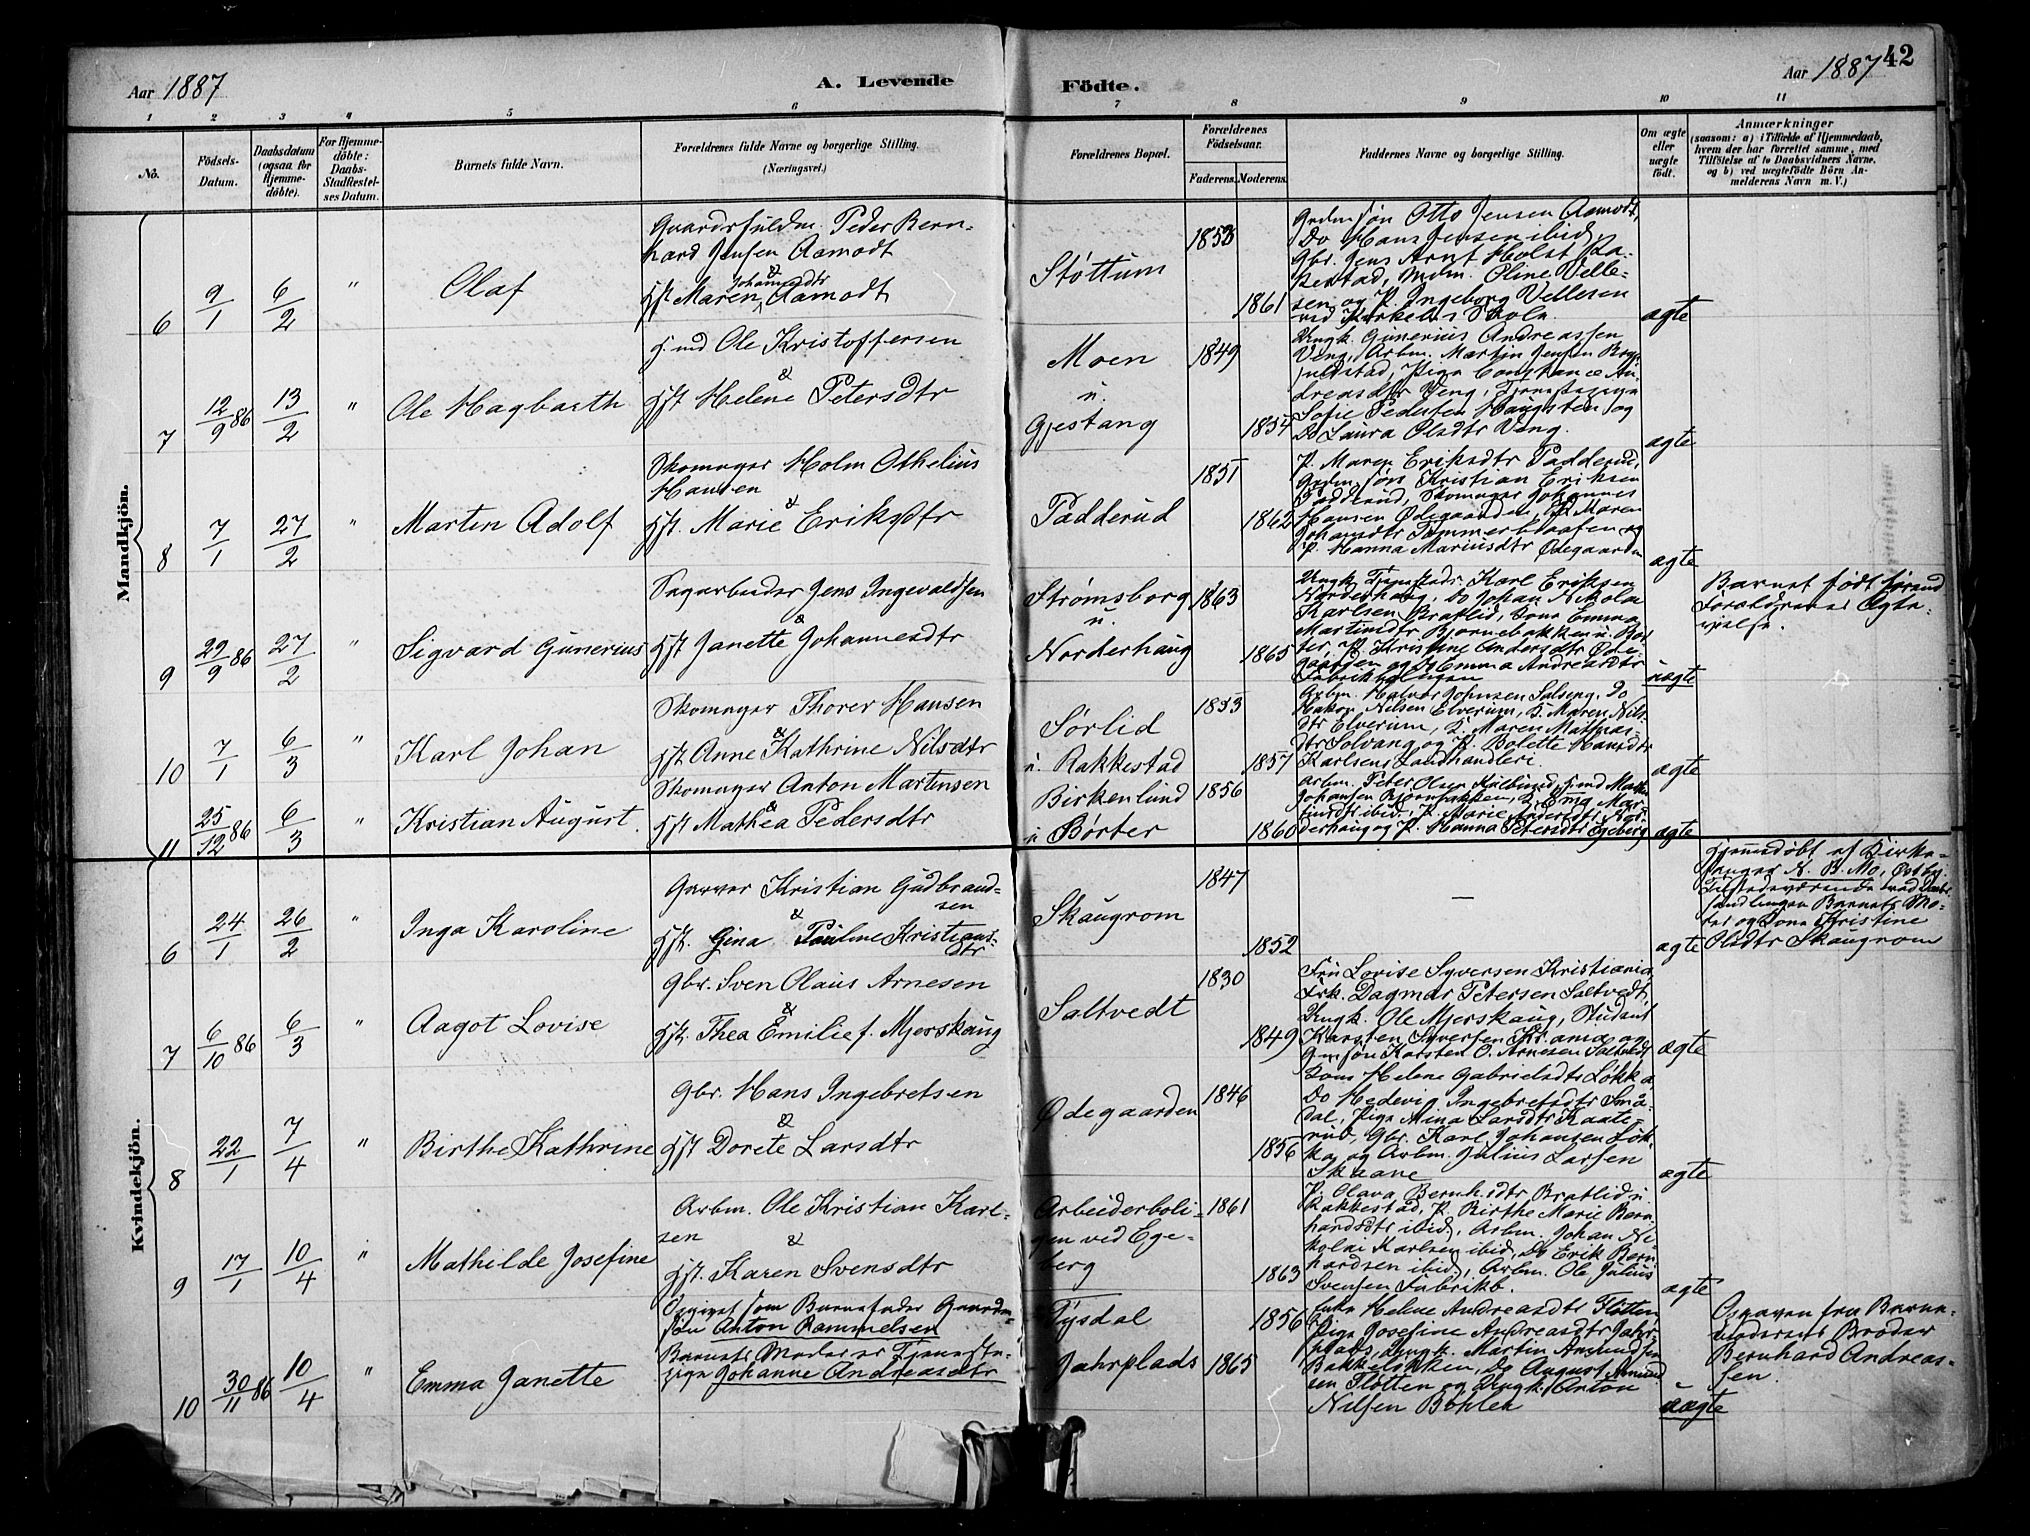 Aar 1887
A. Levende
Födte.
Aar 1887
42
1 2 3 4 5 6 7 8 9 10 11
No.
Födsels-
Datum.
Daabsdatum
(ogsaa for
Hjemme-
döbte).
For Hjemme-
döbte:
Daabs-
Stadfæstel-
ses Datum.
Barnets fulde Navn.
Forældrenes fulde Navne og borgerlige Stilling.
(Næringsvei.)
Forældrenes Bopæl.
Forældrenes
Födselsaar.
Faderens.
Moderens.
Faddernes Navne og borgerlige Stilling.
Om ægte
eller
uægte
födt.
Anmærkninger
(saasom: a) i Tilfælde af Hjemmedaab,
hvem der har forrettet samme, med
Tilföielse af to Daabsvidners Navne,
og b) ved uægtefödte Börn An-
melderens Navn m. V.)
Mandkjön.
6
9/1
6/2
"
Olaf
Peder Bern-
hard Jensen Aamodt
&
Gft Maren Johannesdtr Aamodt
Støttum
1853
1861
Otto Jensen Aamodt,
Do Hans Jensen ibid,
Gbr. Jens Arnt Holst Ra-
kestad, Mdm. Oline Velle-
sen og P. Ingeborg Vellesen
ved Kirkens Skole.
ægte
7
12/9 86
13/2
"
Ole Hagbarth
Ole Kristoffersen
&
Gft Helene Petersdtr
Moen
u.
Gjestang
1849
1854
Ungk. Gunerius Andreassen
Veng, Arbm. Martin Jensen
Pige Constance An-
dreasdtr Veng, Tjenestepige
Sofie Pedersen Haugsten og
Do Laura Olsdtr Veng.
ægte
8
7/1
27/2
"
Marten Adolf
Skomager Holm Othelius
Hansen
&
Gft. Marie Eriksdtr
Padderud
1851
1862
P. Maren Eriksdtr Padderud,
Kristian Eriksen
Padderud, Skomager Johannes
Hansen Ødegaarden, P. Maren
Johansdtr og
P. Hanna Mariusdtr Ødegaarden
ægte
9
29/9 86
27/2
"
Sigvard Gunerius
Sagarbeider Jens Ingevaldsen
&
Gft Janette Johannesdtr
Strømsborg
u.
Norderhaug
1863
1865
Ungk. Karl Eriksen
Norderhaug, Do Johan Nikolai
Karlsen Bratlid, Kone Emma
Martinsdtr Bjørnebakken u. Bør-
ter, P. Kristine Andersdtr Øde-
gaarden og Do Emma Andreasdtr
uægte
Barnet født forend
Forældrenes Ægte-
vielse.
10
7/1
6/3
"
Karl Johan
Skomager Thorer Hansen
&
Gft Anne Kathrine Nilsdtr
Sørlid
u. Rakkestad
1853
1857
Arbm. Halvor Johnsen Solveng, Do
Hakon Nilsen Elverum, K. Maren Nils-
dtr Elverum, K. Maren Mathias-
dtr Solvang og P. Bolette Hansdtr
Karlsens Landhandleri.
ægte
11
25/12 86
6/3
"
Kristian August.
Skomager Anton Martensen
&
Gft Mathea Pedersdtr
Birkenlund
u Børter
1856
1860
Arbm. Peter Olsen
Johansen Bjørnebakken,
og P. Hanna Petersdtr Egeberg
ægte
Kvindekjön.
6
24/1
26/2
"
Inga Karoline
Garver Kristian Gudbrand-
sen
&
Gft. Gina Pauline Kristians-
dtr
Skaugrom
1847
1852
—
ægte
Hjemmedøbt af Kirke-
sanger N. B. Mo, Østby.
Tilstedeværende ved Daabs-
handlingen Barnets Mo-
der og Kone Kristine
Olsdtr Skaugrom
7
6/10 86
6/3
"
Aagot Lovise
Gbr. Sven Olaus Arnesen
&
Gft. Thea Emilie f. Mjerskaug
Saltvedt
1830
1849
Fru Lovise Syversen Kristiania,
Frk. Dagmar Petersen Saltvedt,
Ungk. Ole Mjerskaug, Student
Karsten Syversen Kr.ania og
Gmsøn Karsten O. Arnesen Saltvedt
ægte
8
22/1
7/4
"
Birthe Kathrine
Gbr. Hans Ingebretsen
&
Gft Dorete Larsdtr
Ødegaarden
1846
1856
Kone Helene Gabrielsdtr Løkka,
Do Hedevig Ingebretsdtr Små-
dal, Pige Mina Larsdtr Kaate-
rud, Gbr. Karl Johansen Løk-
ka, og Arbm. Julius Larsen
Skaane
ægte
9
17/1
10/4
"
Mathilde Josefine
Arbm. Ole Kristian Karl-
sen
&
Gft. Karen Svensdtr
Arbeiderboli-
gen ved Ege-
berg
1861
1863
P. Olava Bernh.dtr Bratlid u.
Rakkestad, P. Birthe Marie Bern-
hardsdtr ibid, Arbm. Johan Ni-
kolai Karlsen ibid, Do Erik Bern-
hardsen ibid., Arbm. Ole Julius
Svensen Fabrikb.
ægte
10
30/11 86
10/4
"
Emma Janette
Opgivet som Barnefader Gaardm-
søn Anton Rammelsen
Barnets Moder er Tjeneste-
pige Johanne Andreasdtr
Tysdal
Jahrplads
1856
1865
Enke Helene Andreasdtr Fløtten,
Pige Josefine Andreasdtr Jahr-
plads, Ungk. Martin Amundsen
Bakkeløkken, Do August Amund-
sen Fløtten og Ungk. Anton
Nilsen Bøhler
uægte
Opgaven fra Barne-
moderens Broder
Bernhard Andreas-
sen.